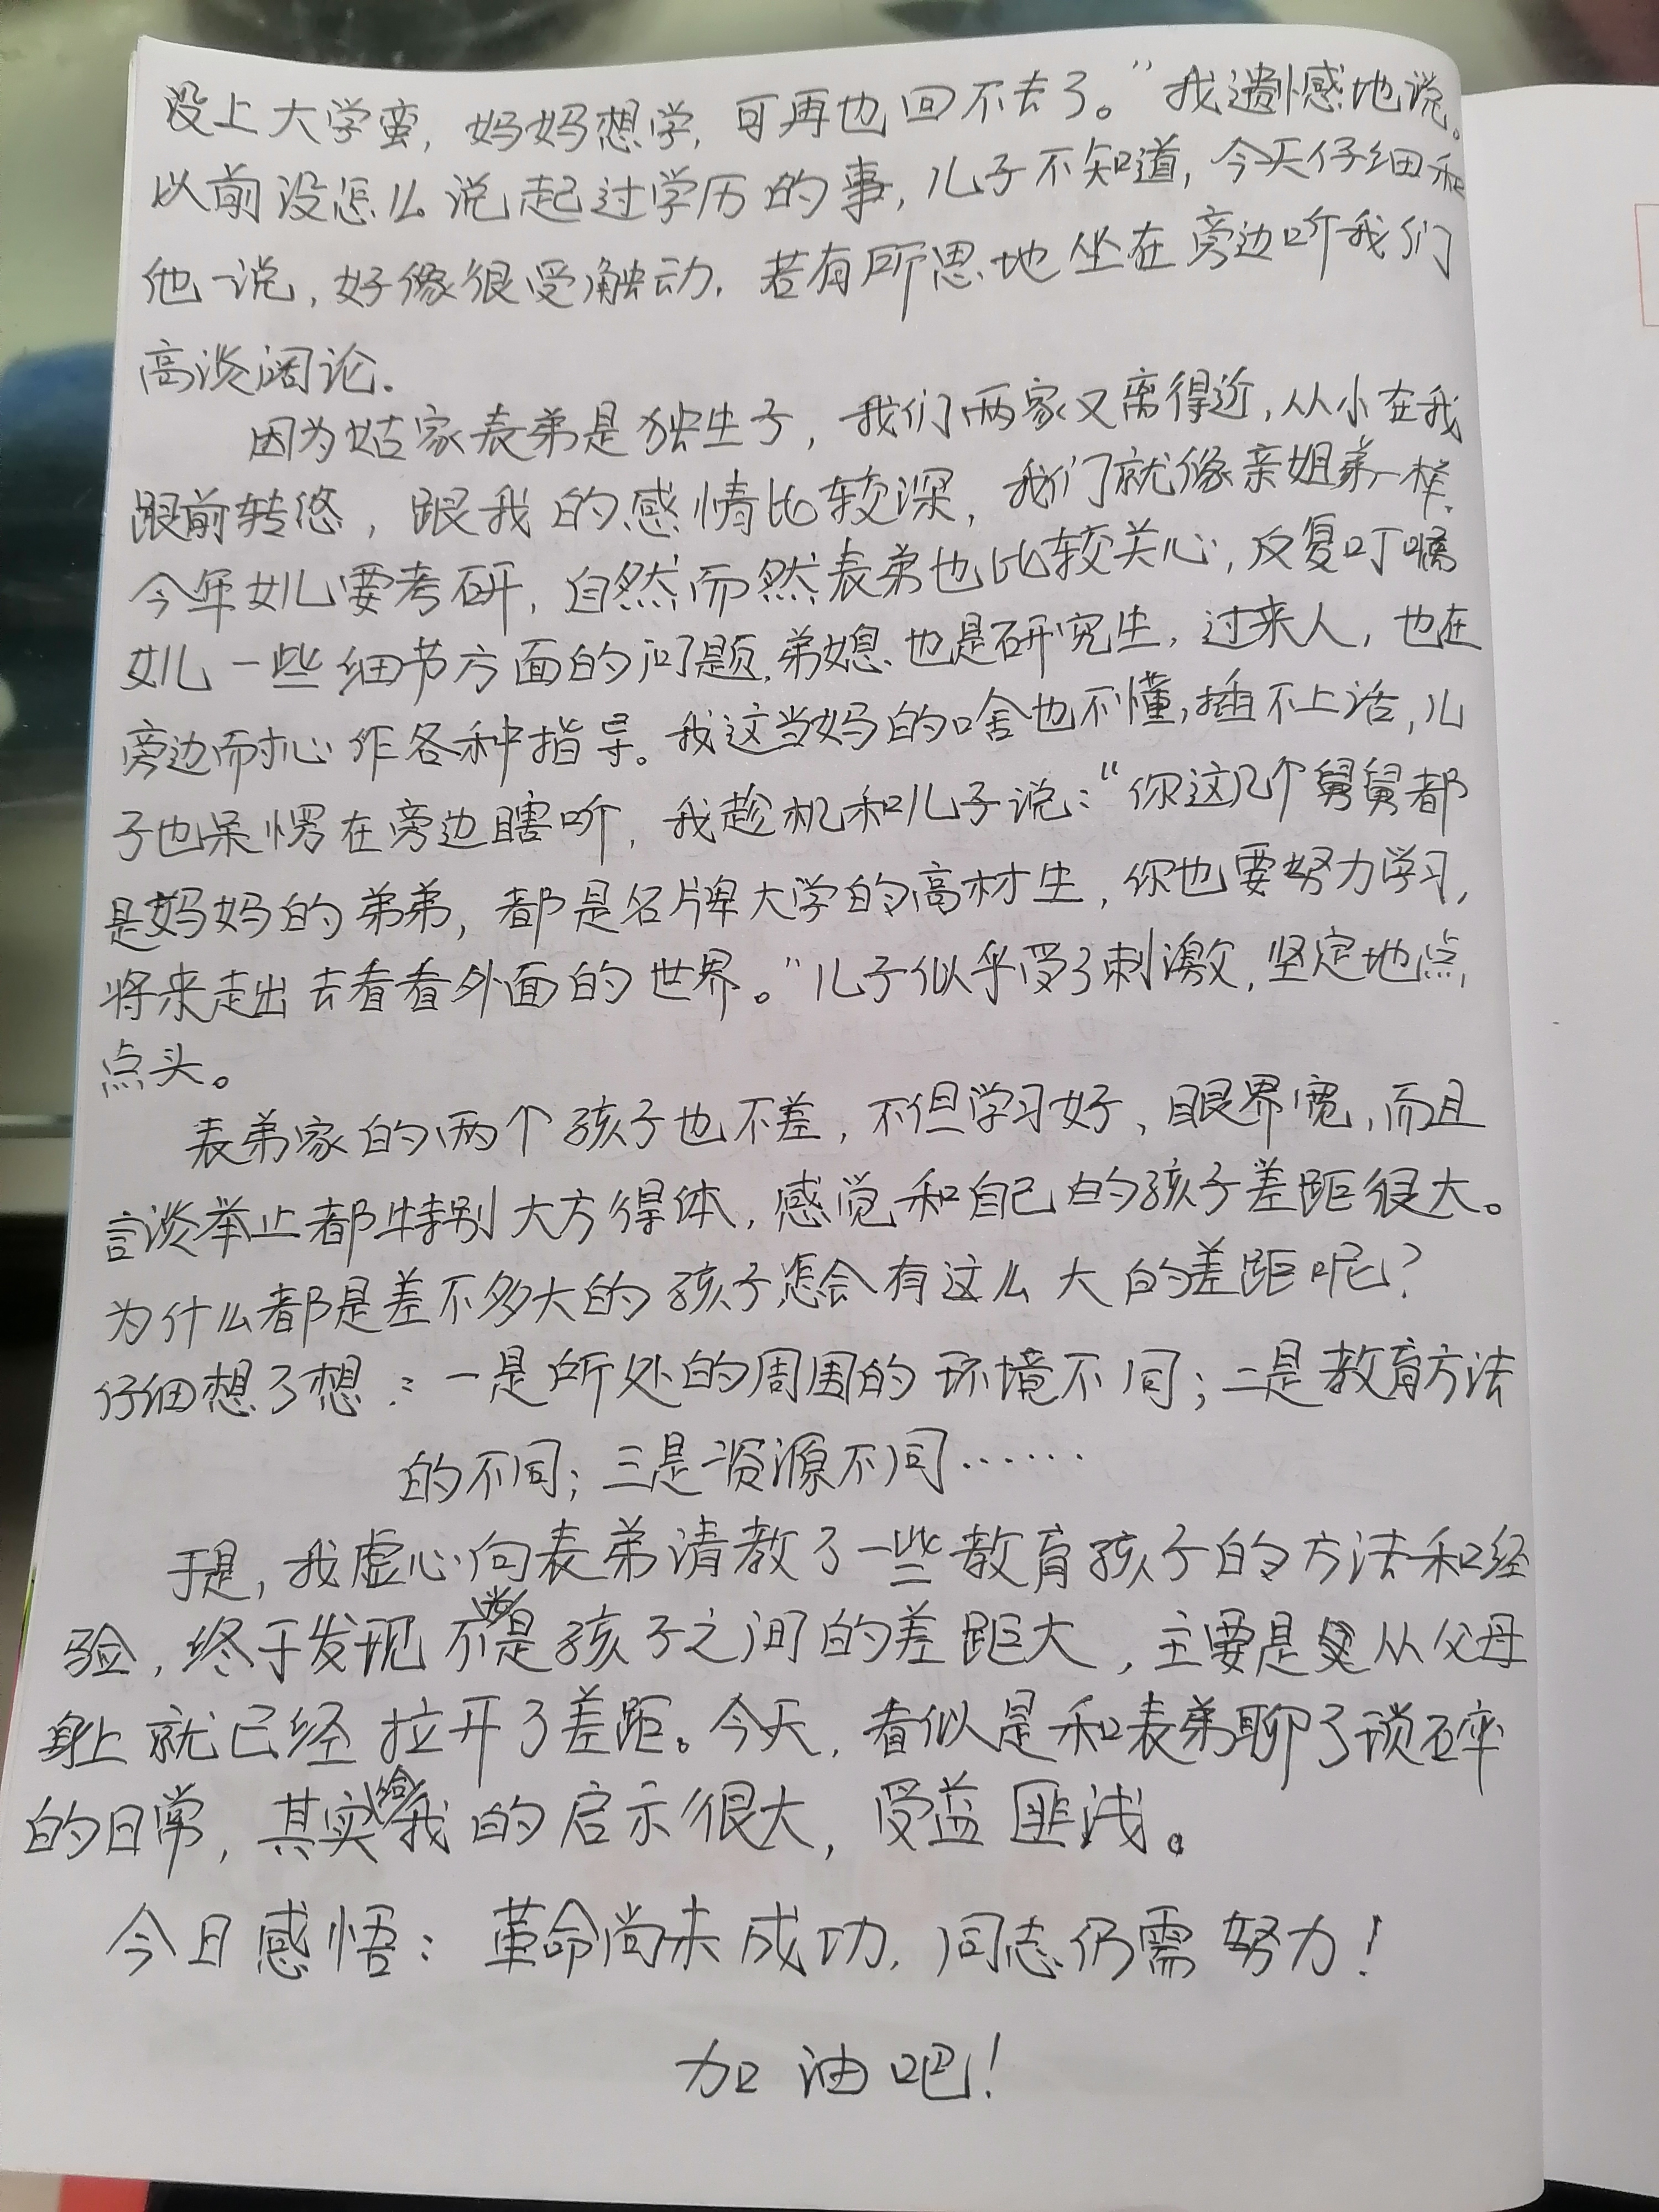 没上大学蛮，妈妈想学，可再也回不去了。"我遗憾地说。
以前没怎么说起过学历的事，儿子不知道，今天仔细和
他一说，好像很受触动，若有所思地坐在旁边听我们
高淡阔论.
因为姑家表弟是独生子，我们两家又离得近，从小在我
跟前转悠，跟我的感情比较深，我们就像亲姐弟一样.
今年女儿要考研，自然而然表弟也比较关心，反复叮嘱
女儿一些细节方面的问题.弟媳也是研究生，过来人，也在
旁边耐心作各种指导。我这当妈的啥也不懂，插不上话，儿
子也呆愣在旁边瞎听，我趁机和儿子说："你这几个舅舅都
是妈妈的弟弟，都是名牌大学的高材生，你也要努力学习，
将来走出去看看外面的世界。"儿子似乎受了刺激，坚定地点
点头。
表弟家的两个孩子也不差，不但学习好、眼界宽，而且
言谈举止都特别大方得体，感觉和自己的孩子差距很大。
为什么都是差不多大的孩子怎会有这么大的差距呢？
仔细想了想：一是所处的周围的环境不同；二是教育方法
的不同；三是资源不同……
于是，我虚心向表弟请教了一些教育孩子的方法和经
验，终于发现不是孩子之间的差距大，主要是从父母
身上就已经拉开了差距。今天，看似是和表弟聊了琐碎
的日常，其实给我的启示很大，受益匪浅。
今日感悟：革命尚未成功，同志仍需努力！
加油吧！